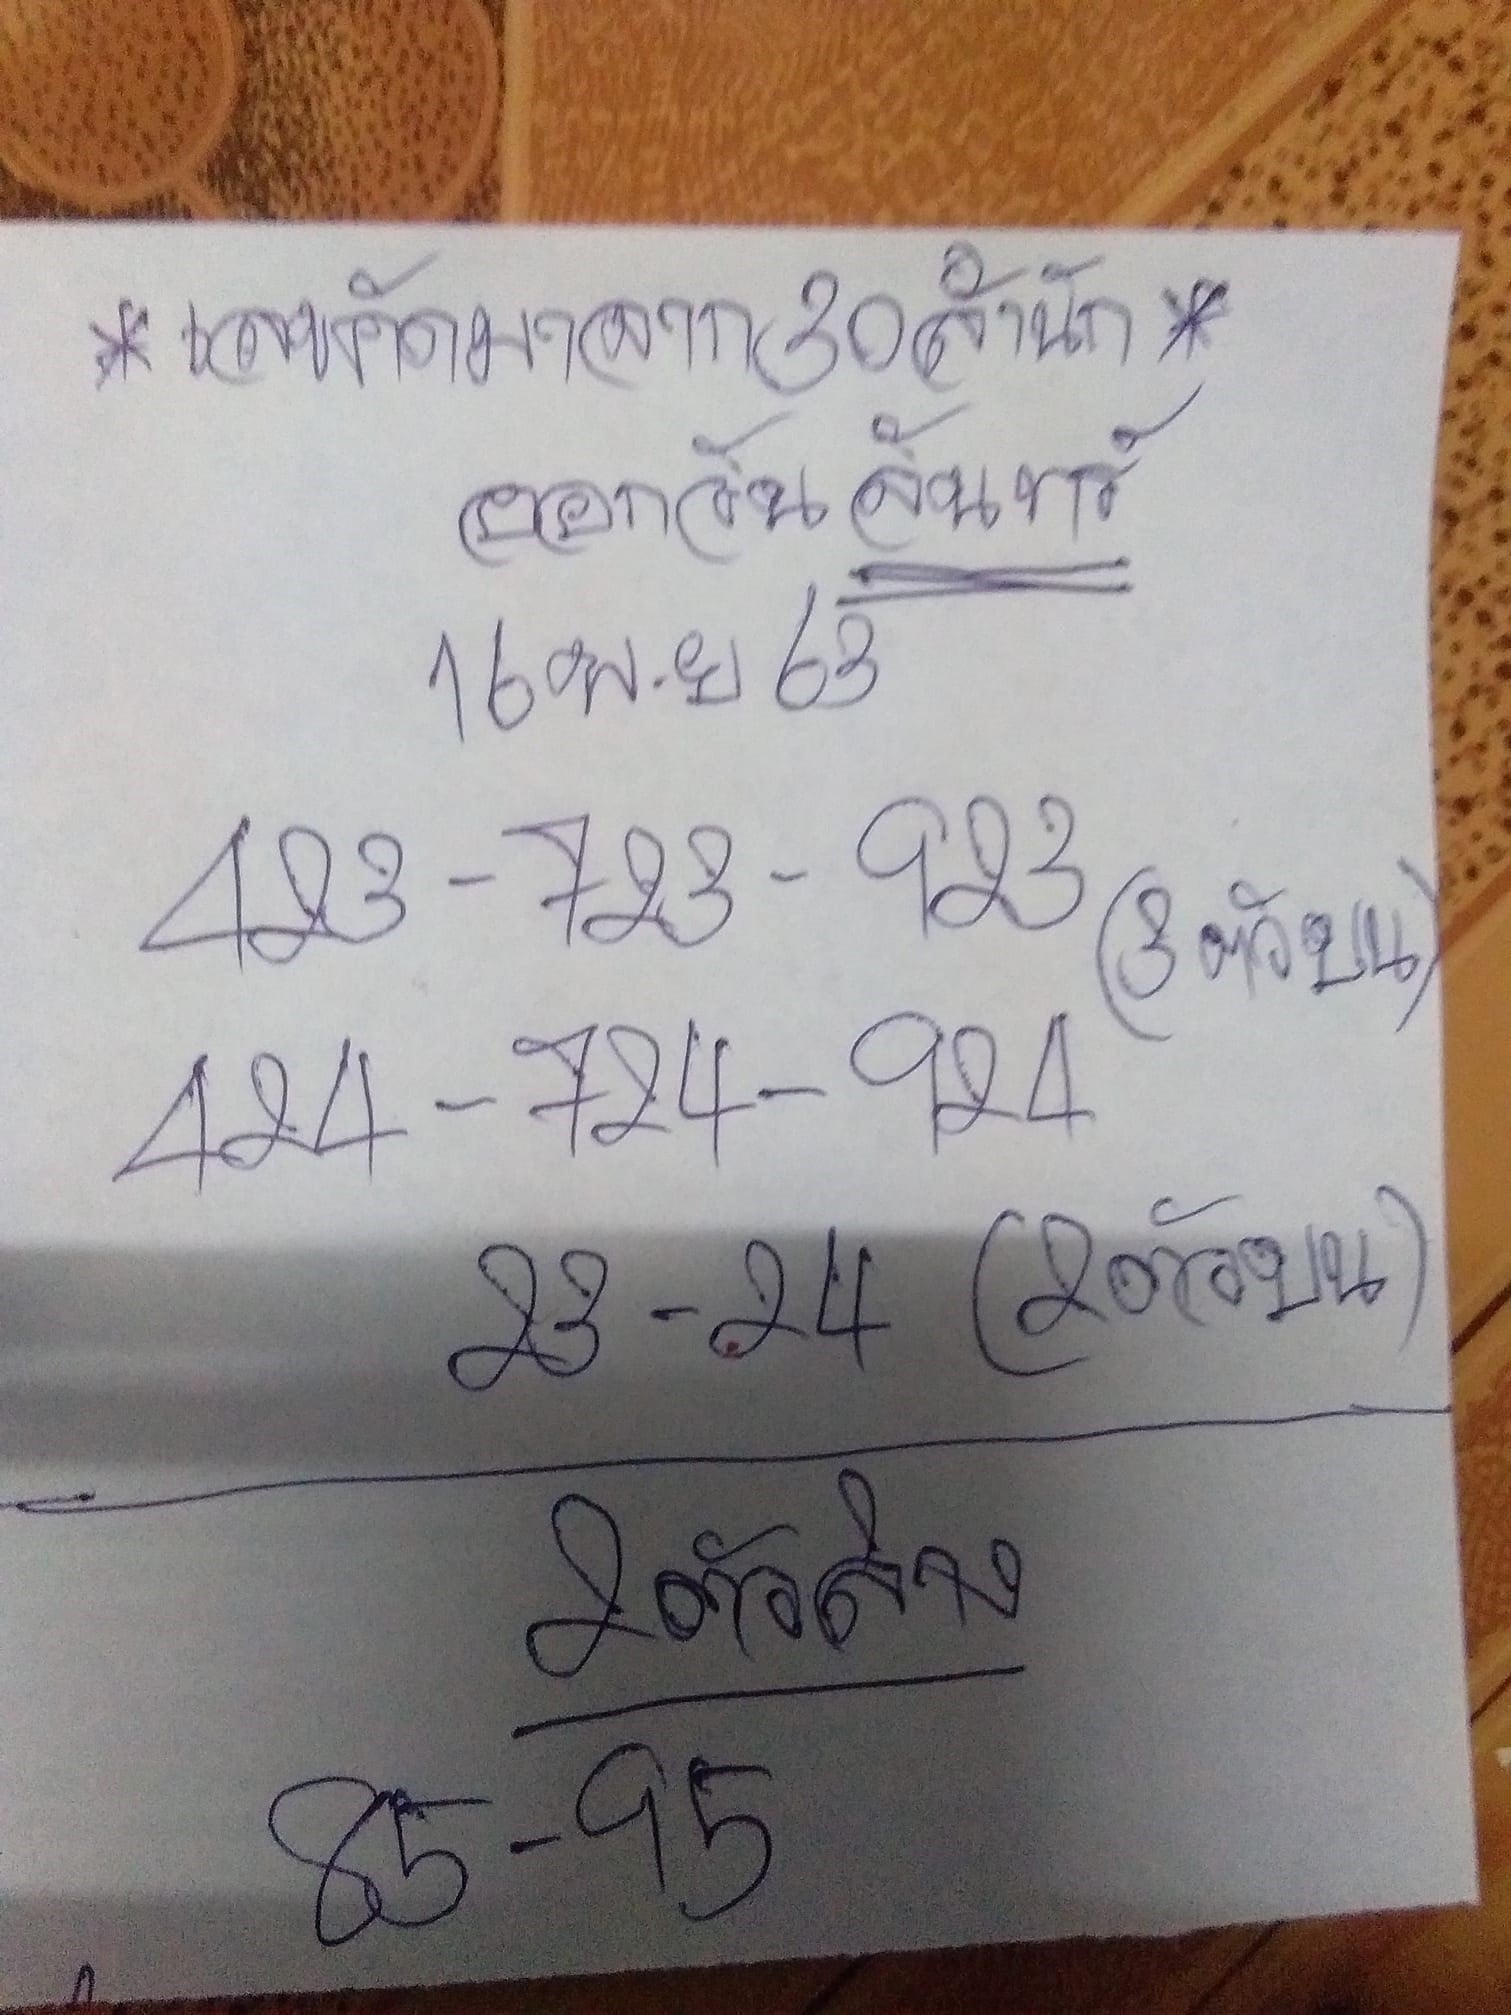 *เลขคัดมาจาก30สำนัก*
ออกวันจันทร์
16 พ.ย 63
423-723-923
(3ตัวบน)
424-724-924
23-24 (2ตัวบน)
2ตัวล่าง
85-95